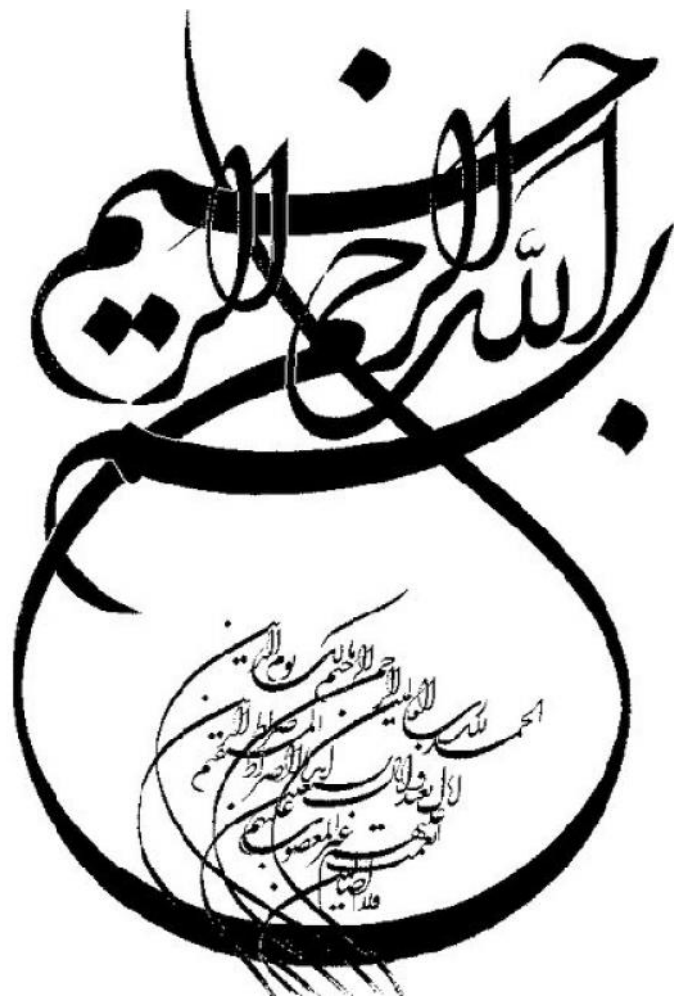 بسم
الله الرحمن الرحيم
الحمد لله رب العالمين الرحمن الرحيم مالك يوم الدين
اياك نعبد و اياك نستعين اهدنا الصراط المستقيم صراط الذين
انعمت عليهم غير المغضوب عليهم
ولا الضالين